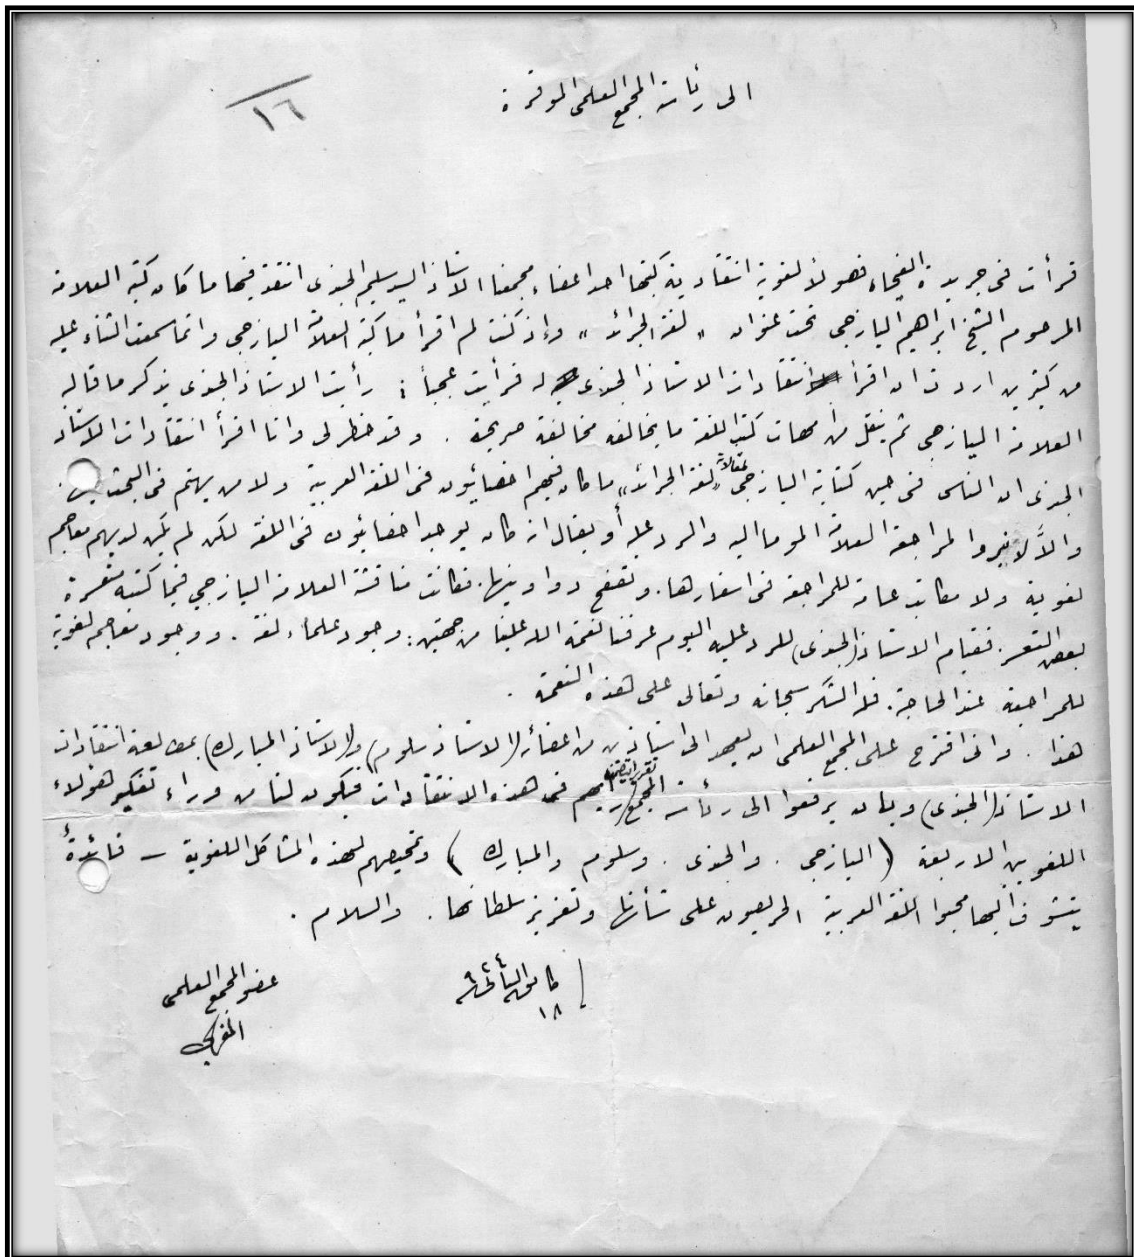 الى رئاسة المجمع العلمي الموقرة
١٦
قرأت في جريدة الفيحاء فصولاً لغوية انتقادية كتبها احد اعضاء مجمعنا الاستاذ السيد سليم الجندى انتقد فيها ما كان كتبه العلامة
المرحوم الشيخ ابراهيم اليازجي تحت عنوان « لغة الجرائد » وإذ كنت لم اقرأ ما كتبه العلامة اليازجي وانما سمعت الثناء عليه
من كثيرين اردت ان اقرأ انتقادات الاستاذ الجندى له فرأيت عجباً : رأيت الاستاذ الجندى يذكر ما قاله
العلامة اليازجي ثم ينقل من أمهات كتب اللغة ما يخالفه مخالفة صريحة . وقد خطر لى وانا اقرأ انتقادات الاستاذ
الجندى ان الناس فى حين كتابة اليازجي لمقالات «لغة الجرائد» ما كان فيهم اخصائيون فى اللغة العربية ولا من يهتم فى البحث
والاَّ لانبروا لمراجعة العلامة الموما اليه والرد عليه أو يقال انه كان يوجد اخصائيون فى اللغة لكن لم يكن لديهم معاجم
لغوية ولا مكاتب عامة للمراجعة فى اسفارها . وتصفح دواوينها . فكانت مناقشة العلامة اليازجي فيما كتبه متعسرة
بعض التعسر . فقيام الاستاذ (الجندى) للرد عليه اليوم عرفنا نعمة الله علينا من جهتين : وجود علماء لغة . ووجود معاجم لغوية
للمراجعة عند الحاجة . فله الشكر سبحانه وتعالى على هذه النعمة .
هذا . وانى اقترح على المجمع العلمى ان يعهد الى استاذين من اعضائه (الاستاذ سلوم) و(الاستاذ المبارك) بمطالعة انتقادات
الاستاذ (الجندى) وبان يرفعوا الى رئاسة المجمع تقريراً يتضمن رأيهم فى هذه الانتقادات فيكون لنا من وراء تفكير هؤلاء
اللغويين الاربعة ( اليازجي . والجندى . وسلوم والمبارك ) وتمحيصهم لهذه المشاكل اللغوية – فائدةٌ
يتشوف اليها محبوا اللغة العربية الحريصون على شأنها وتعزيز سلطانها . والسلام .
١٨ ٩٢٤
عضو المجمع العلمي
المغربي